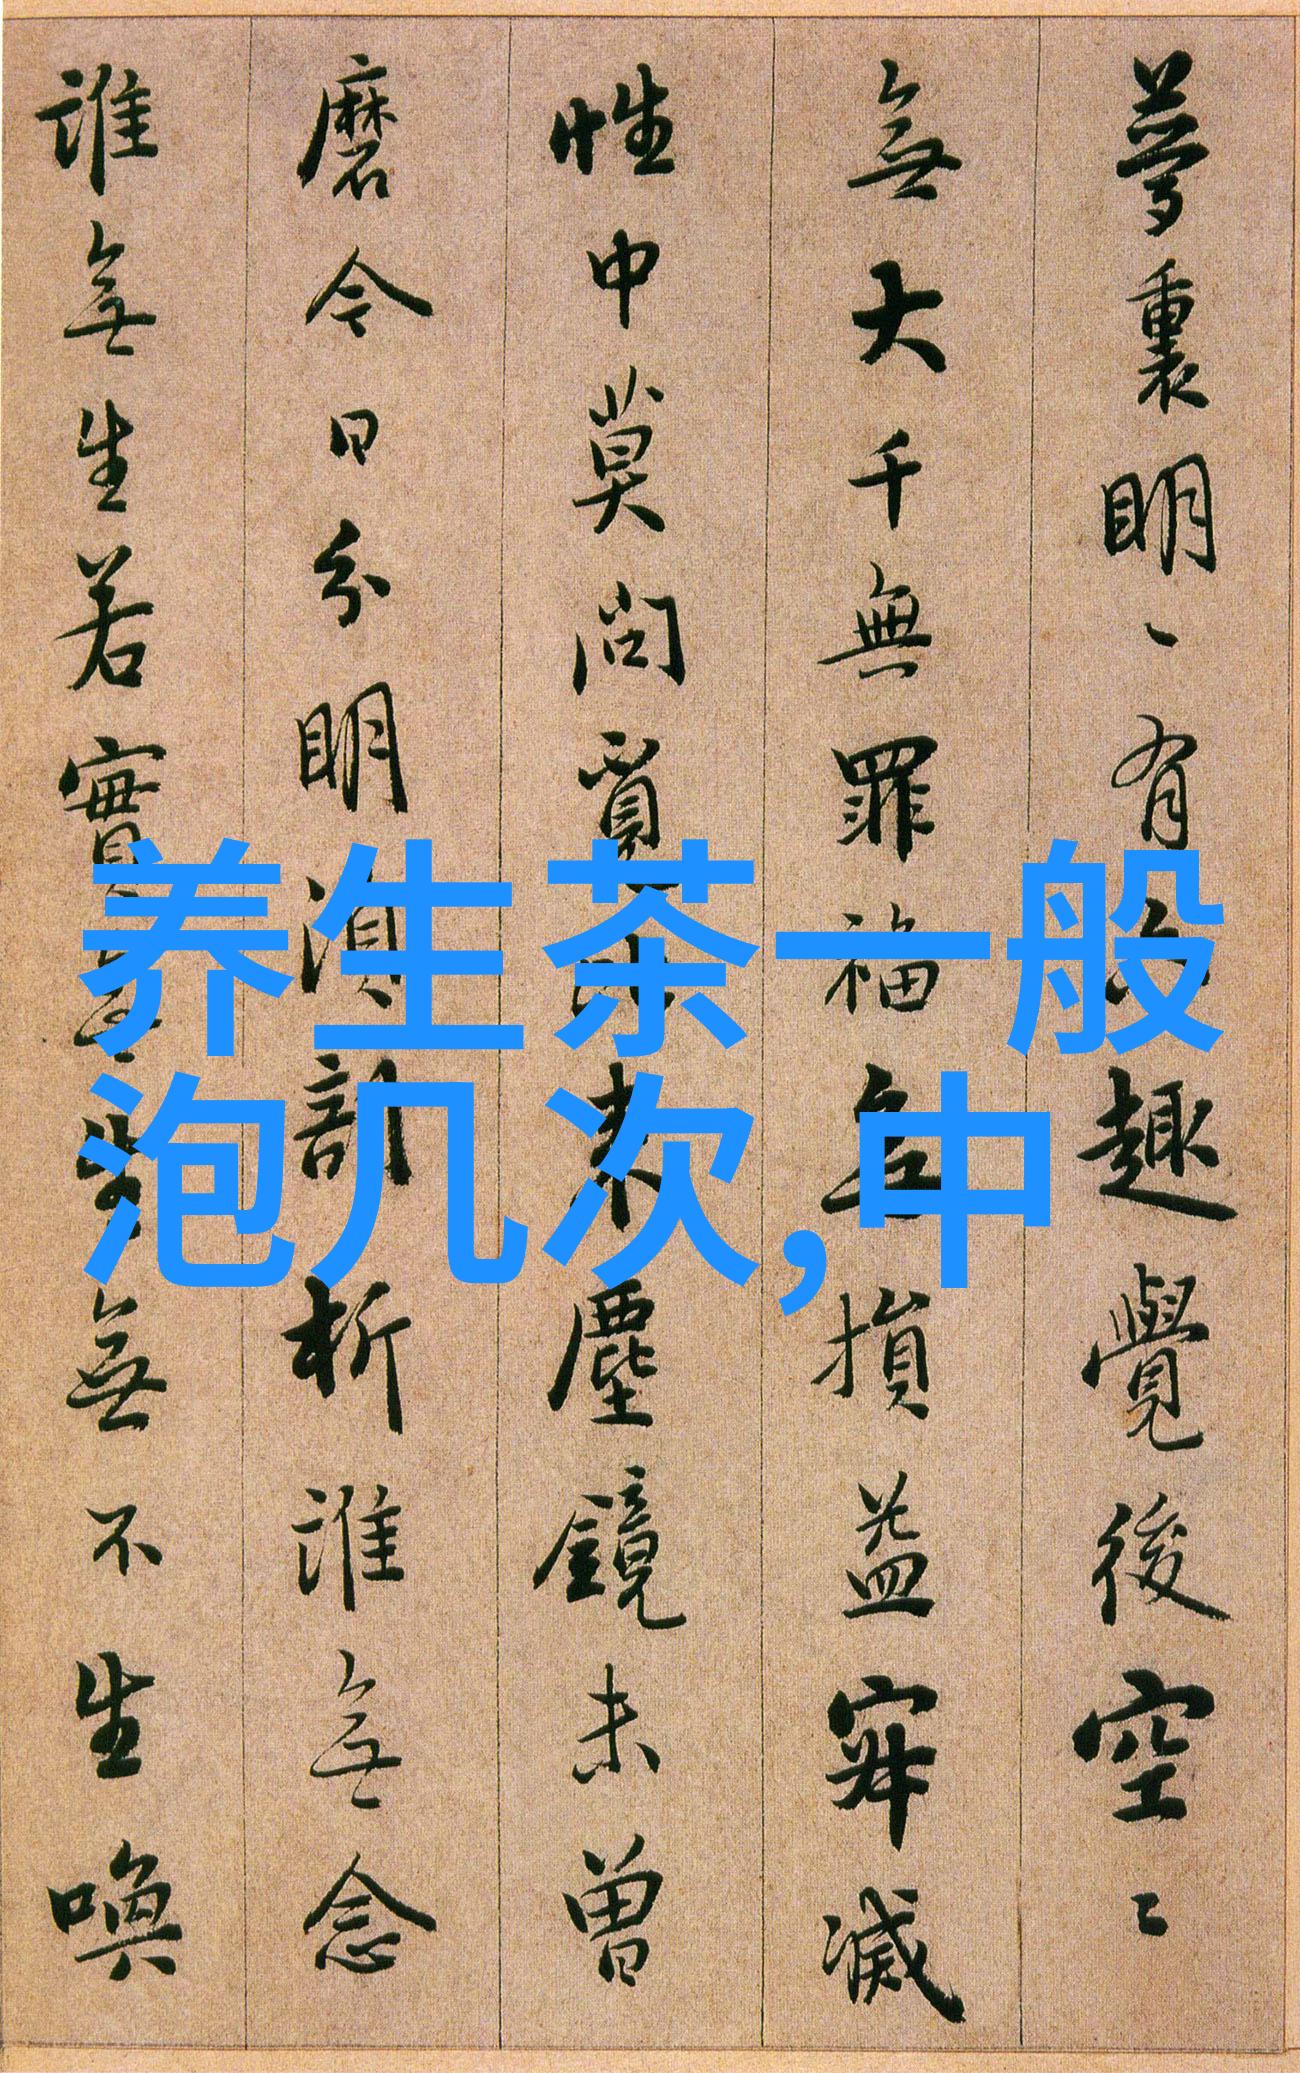 夢裏明々有六趣覺後空々
無大千無罪福無損益寂滅
性中莫問覓比来塵鏡未曾
磨今日分明須剖析誰無念
誰無生若實無生無不生喚
养生茶一般
泡几次,中